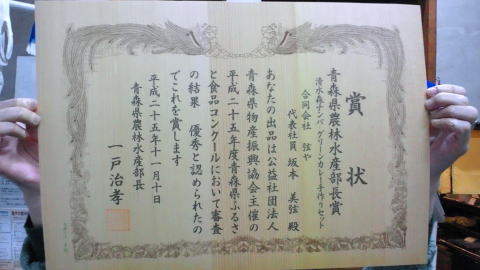 賞状
青森県農林水産部長賞
清水森ナンバグリーンカレー手作りセット
合同会社 弦や
代表社員 坂本 美弦 殿
あなたの出品は公益社団法人
青森県物産振興協会主催の
平成二十五年度青森県ふるさ
と食品コンクールにおいて審査
の結果 優秀と認められたの
でこれを賞します
平成二十五年十一月十日
青森県農林水産部長
一戸治孝